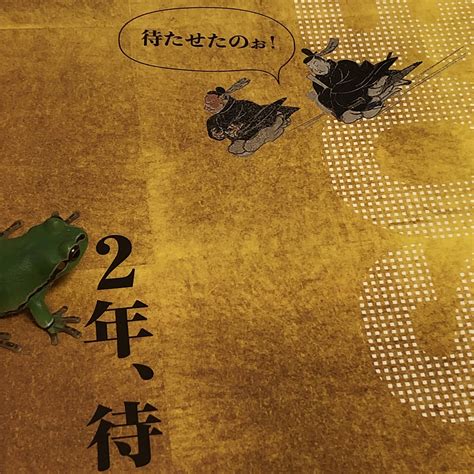 待たせたのぉ!
2年、待